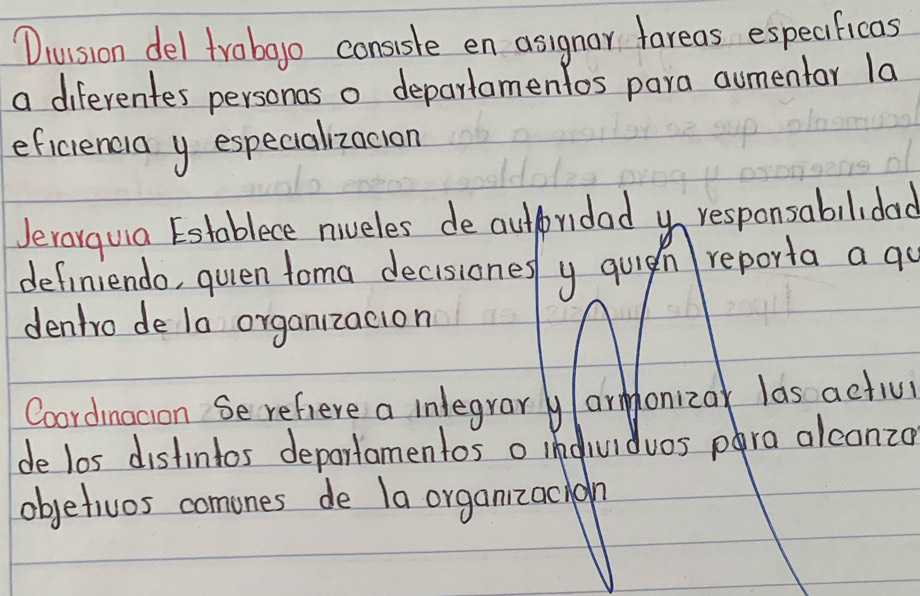 Division del trabajo consiste en asignar tareas especificas
a diferentes personas o departamentos para aumentar la
eficiencia y especializacion
Jerarquia Establece niveles de autoridad y responsabilidad
definiendo, quien toma decisiones y quien reporta a qu
dentro de la organizacion
Coordinacion Se refiere a integrar y armonizar las activi
de los distintos departamentos o individuos para alcanza
objetivos comunes de la organizacion